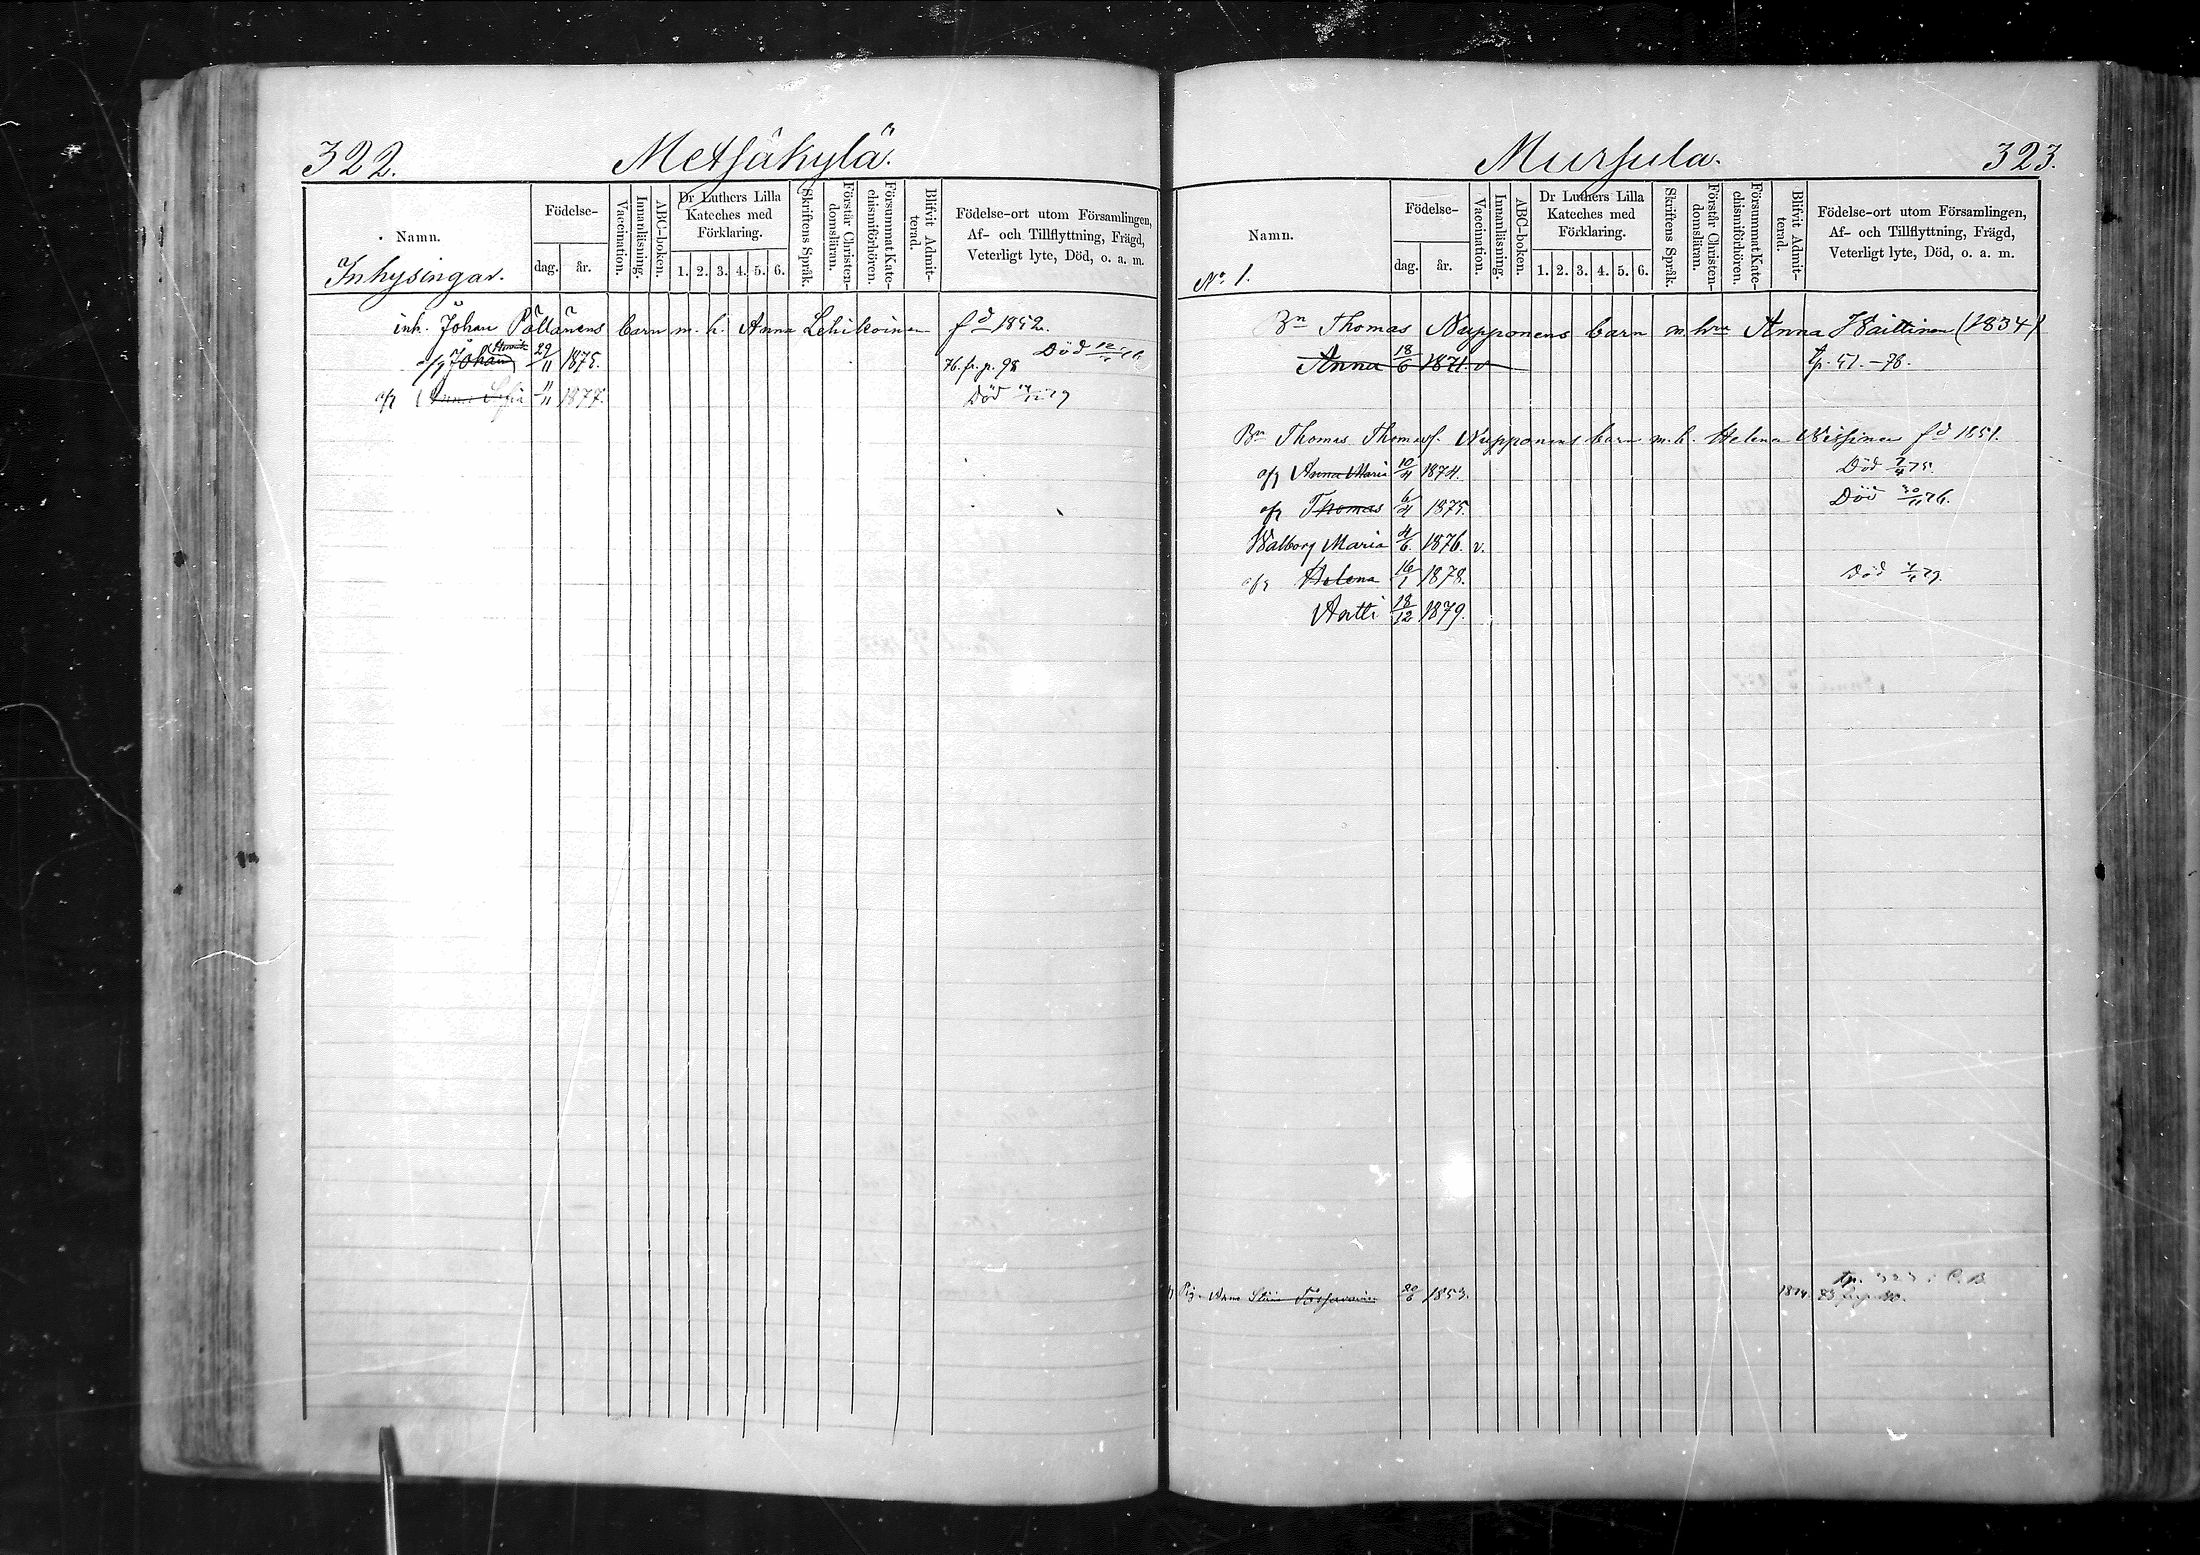 322. Metsäkylä.
Namn.
Födelse-
dag. år.
Vaccination.
Innanläsning.
ABC-boken.
Dr Luthers Lilla
Kateches med
Förklaring.
1. 2. 3. 4. 5. 6.
Skriftens Språk.
Förstår Christen-
domsläran.
Försummat Kate-
chismiförhören.
Blifvit Admit-
terad.
Födelse-ort utom Församlingen,
Af- och Tillflyttning, Frägd,
Veterligt lyte, Död, o. a. m.
Inhysingar.
inh. Johan Pöllänens barn m. h. Anna Lehikoinen f.d 1852.
o/g Johan Henrik 29/11 1875. 76. fr. p. 98 Död
o/g Anna Sofia 11/11 1877. Död
Mursula. 323.
Namn.
Födelse-
dag. år.
Vaccination.
Innanläsning.
ABC-boken.
Dr Luthers Lilla
Kateches med
Förklaring.
1. 2. 3. 4. 5. 6.
Skriftens Språk.
Förstår Christen-
domsläran.
Försummat Kate-
chismiförhören.
Blifvit Admit-
terad.
Födelse-ort utom Församlingen,
Af- och Tillflyttning, Frägd,
Veterligt lyte, Död, o. a. m.
No 1.
Bn Thomas Nupponens barn m. hru Anna Waittinen (1834)
Anna 18/6 1871. v tp. 51. -78.
Bn Thomas Thomasf. Nupponens barn m. h. Helena Nissinen f.d 1851.
o/g Anna Maria 10/4 1874. Död 7/4 75.
o/g Thomas 6/4 1875. Död 30/11 76.
Walborg Maria 4/6 1876. v.
o/g Helena 16/1 1878. Död
Antti 18/12 1879.
Pig. Anna Stina 20/6 1853. 1874.